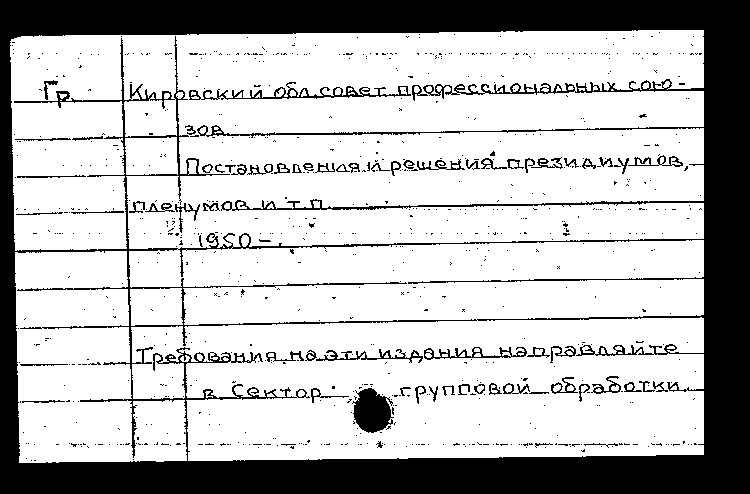 Гр. Кировский обл.совет профессиональных сою-
зов.
Постановления и решения президиумов,
пленумов и т.п.
1950-.
Требования на эти издания направляйте
в Сектор групповой обработки.